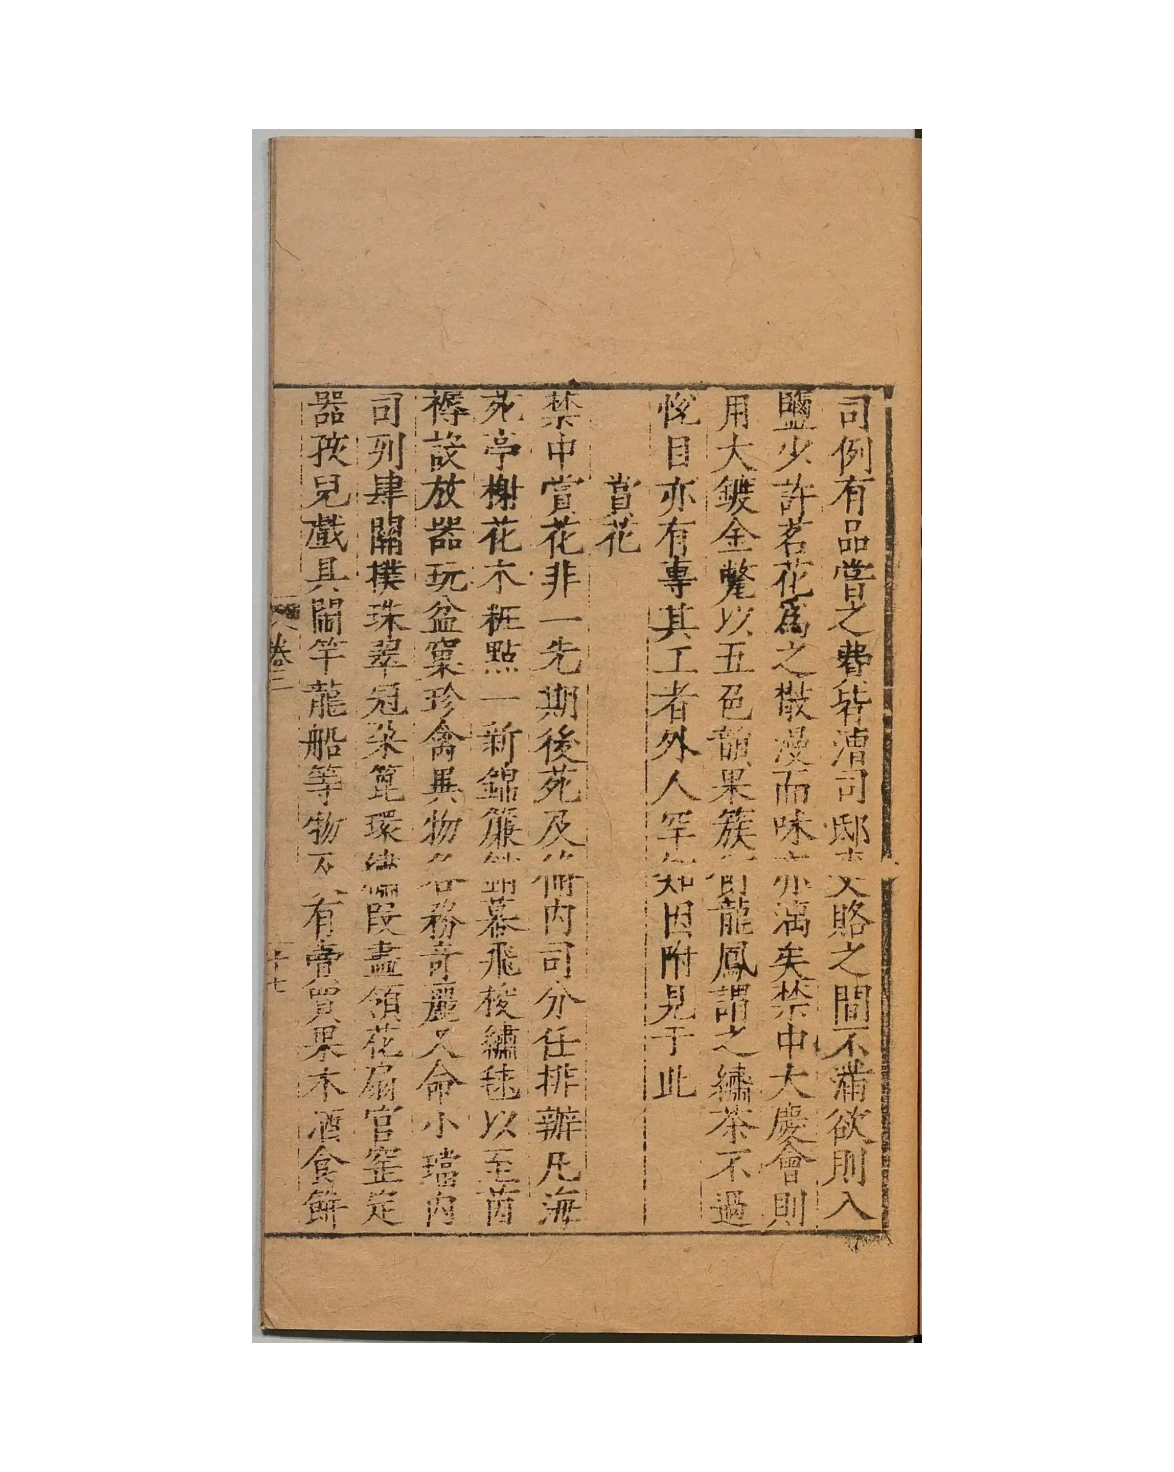 司例有品嘗之費皆漕司邸吏賂之間不滿欲則入
鹽少許茗花爲之散漫而味亦漓矣禁中大慶會則
用大鍍金㽅以五色韻果簇飣龍鳳謂之繡茶不過
悅目亦有專其工者外人罕知因附見于此
賞花
禁中賞花非一先期後苑及脩內司分任排辦凡海
苑亭榭花木粧點一新錦簾綃幕飛梭繡毬以至茵
褥設放器玩盆窠珍禽異物各務奇麗又命小璫內
司列肆關撲珠翠冠朶篦環繡段畫領花扇官窑定
器孩兒戲具鬧竿龍船等物及有賣買果木酒食餅
卷二
十七